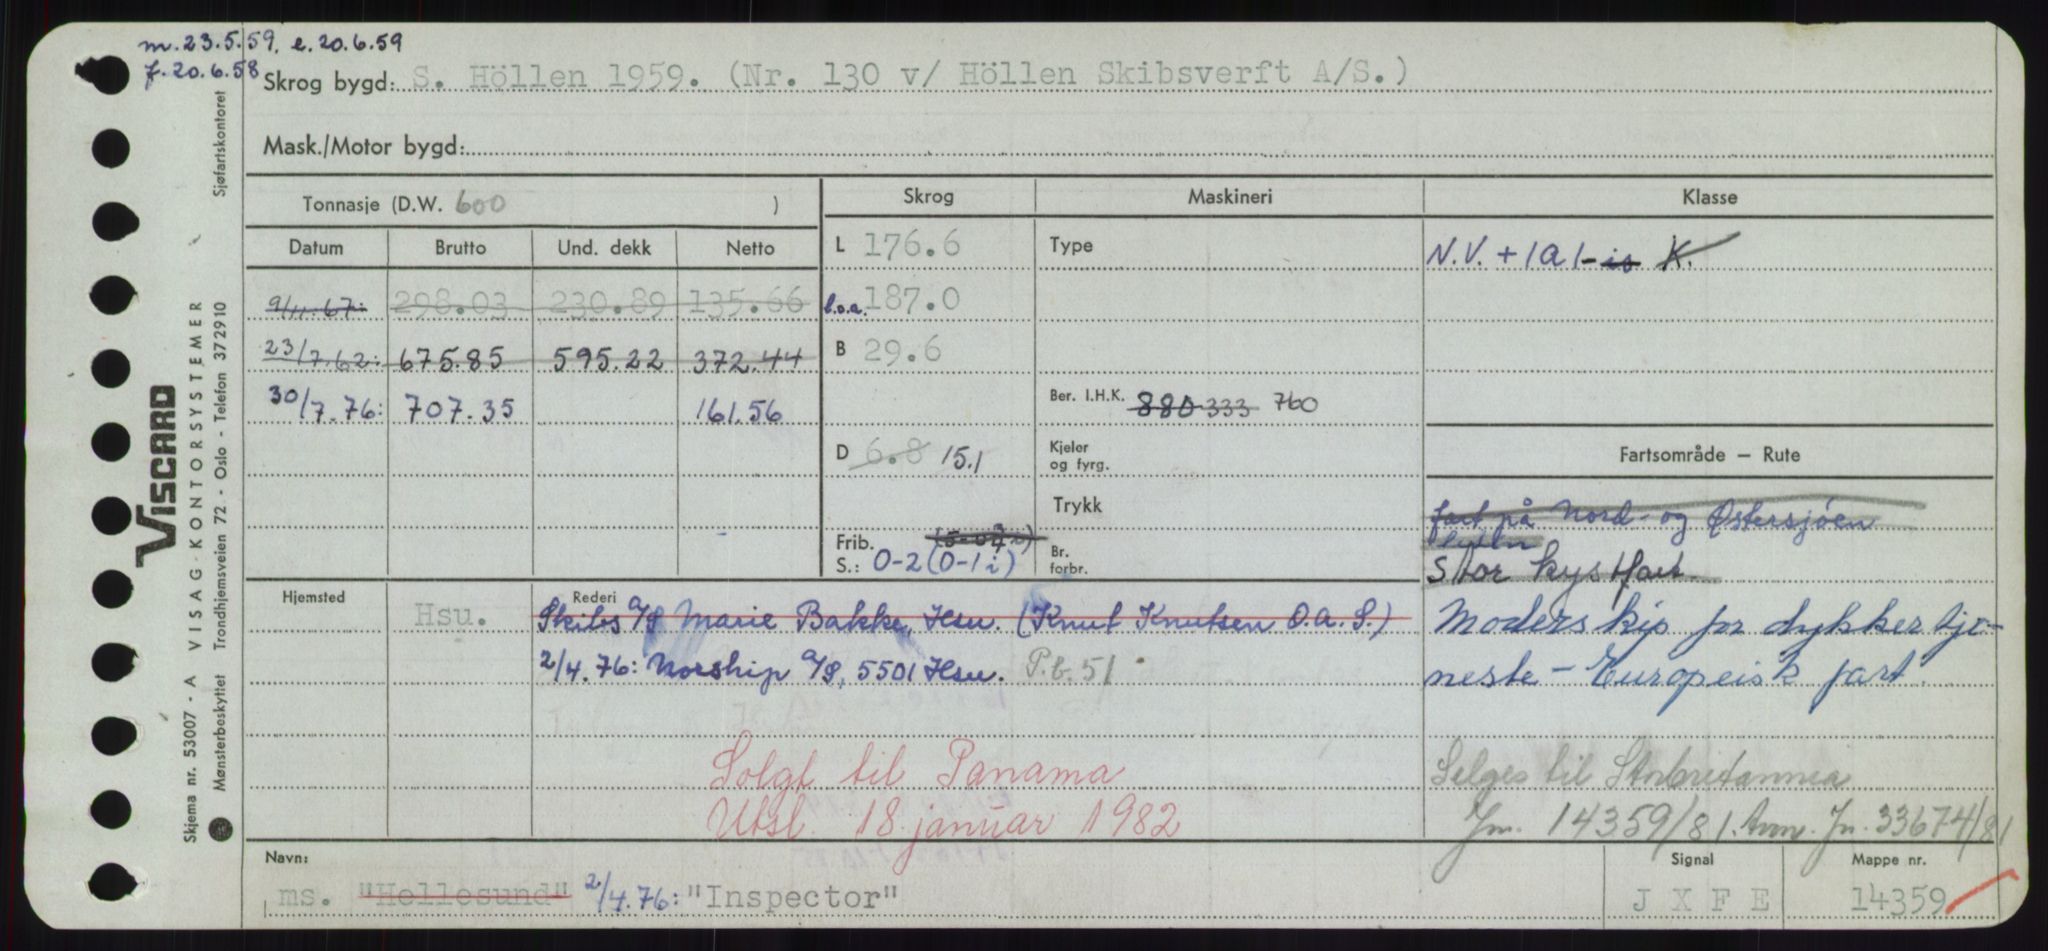 m. 23.5.59, e. 20.6.59
f. 20.6.58
Skrog bygd: S. Höllen 1959. (Nr. 130 v/ Höllen Skibsverft A/S.)
Mask./Motor bygd:
Tonnasje (D.W. 600 )
Skrog Maskineri Klasse
Datum Brutto Und. dekk Netto
L 176.6 Type N.V. + 1A1-is K.
9/11.67: 298.03 230.89 135.66 l.o.a. 187.0
23/7.62: 675.85 595.22 372.44 B 29.6
30/7.76: 707.35 161.56 Ber. I.H.K. 880 333 760
D 6.8 15.1 Kjeler og fyrg. Fartsområde — Rute
Trykk fart på Nord- og Østersjøen
Frib.
S.: 0-2 (0-1 i) Br. forbr. Stor kystfart.
Hjemsted Hsu. Rederi Skibs A/S Marie Bakke, Hsu. (Knut Knutsen O.A.S.) Moderskip for dykkertje-
2/4.76: Norship A/S, 5501 Hsu. P.b. 51 neste - Europeisk fart.
Solgt til Panama Selges til Storbritannia
Utsl. 18. januar 1982 Jn. 14359/81. Ann. Jn. 33674/81
Navn: Signal Mappe nr.
ms. "Hellesund" 2/4.76: "Inspector" J X F E 14359
VISCARD
Skjema nr. 53007 - A VISAG-KONTORSYSTEMER
Mønsterbeskyttet Trondhjemsveien 72 - Oslo - Telefon 372910 Sjøfartskontoret